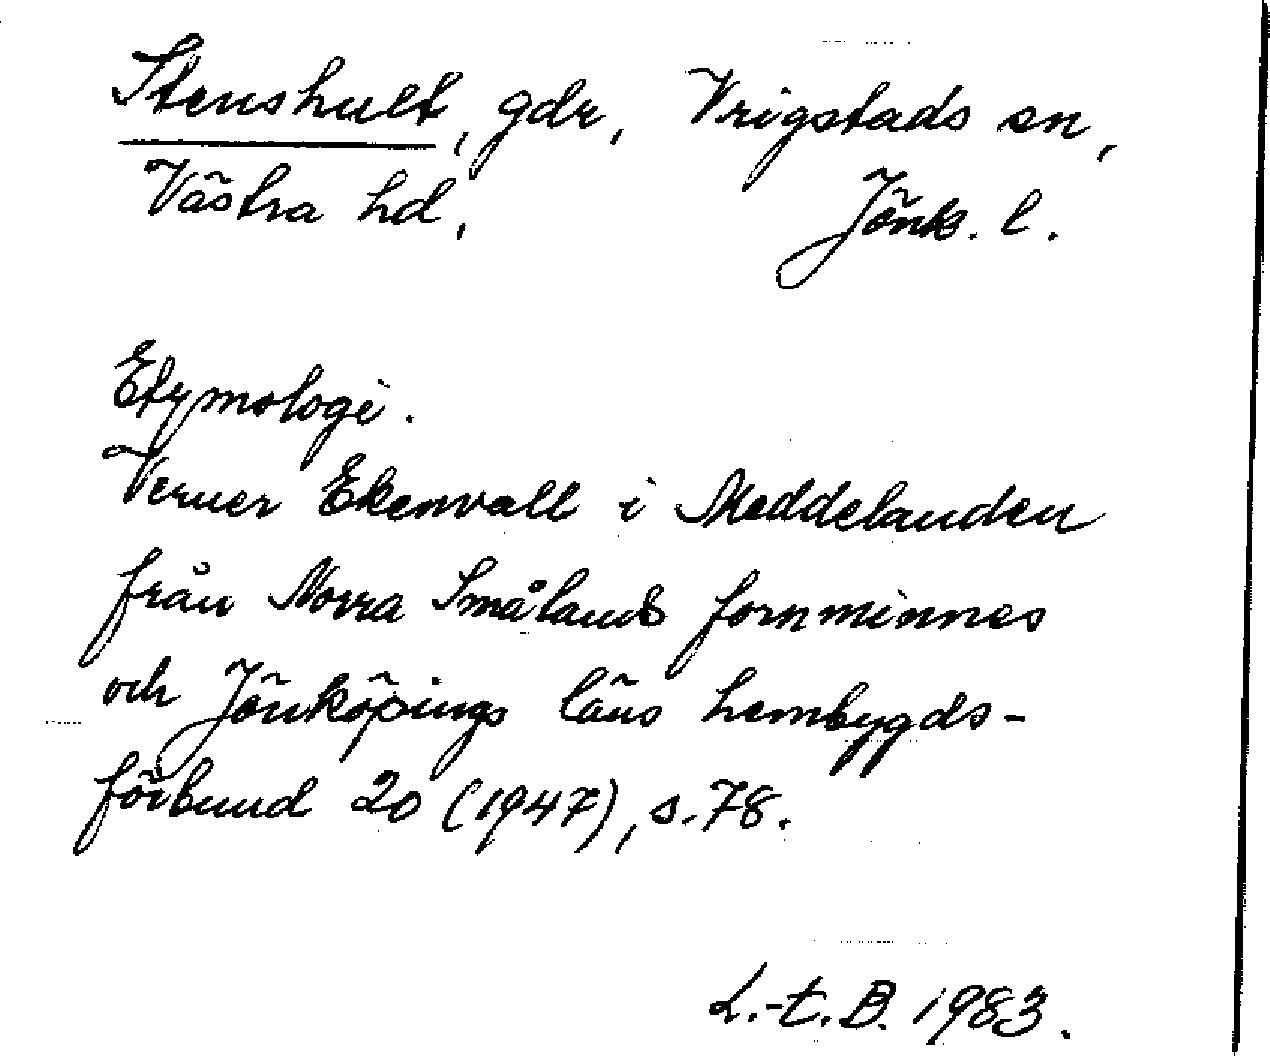 Stenshult, gdr, Vrigstads sn,
Västra hd, Jönk. l.
Etymologi.
Verner Ekenvall i Meddelanden
från Norra Smålands fornminnes
och Jönköpings läns hembygds-
förbund 20 (1947), s. 78.
L.-t. B. 1983.